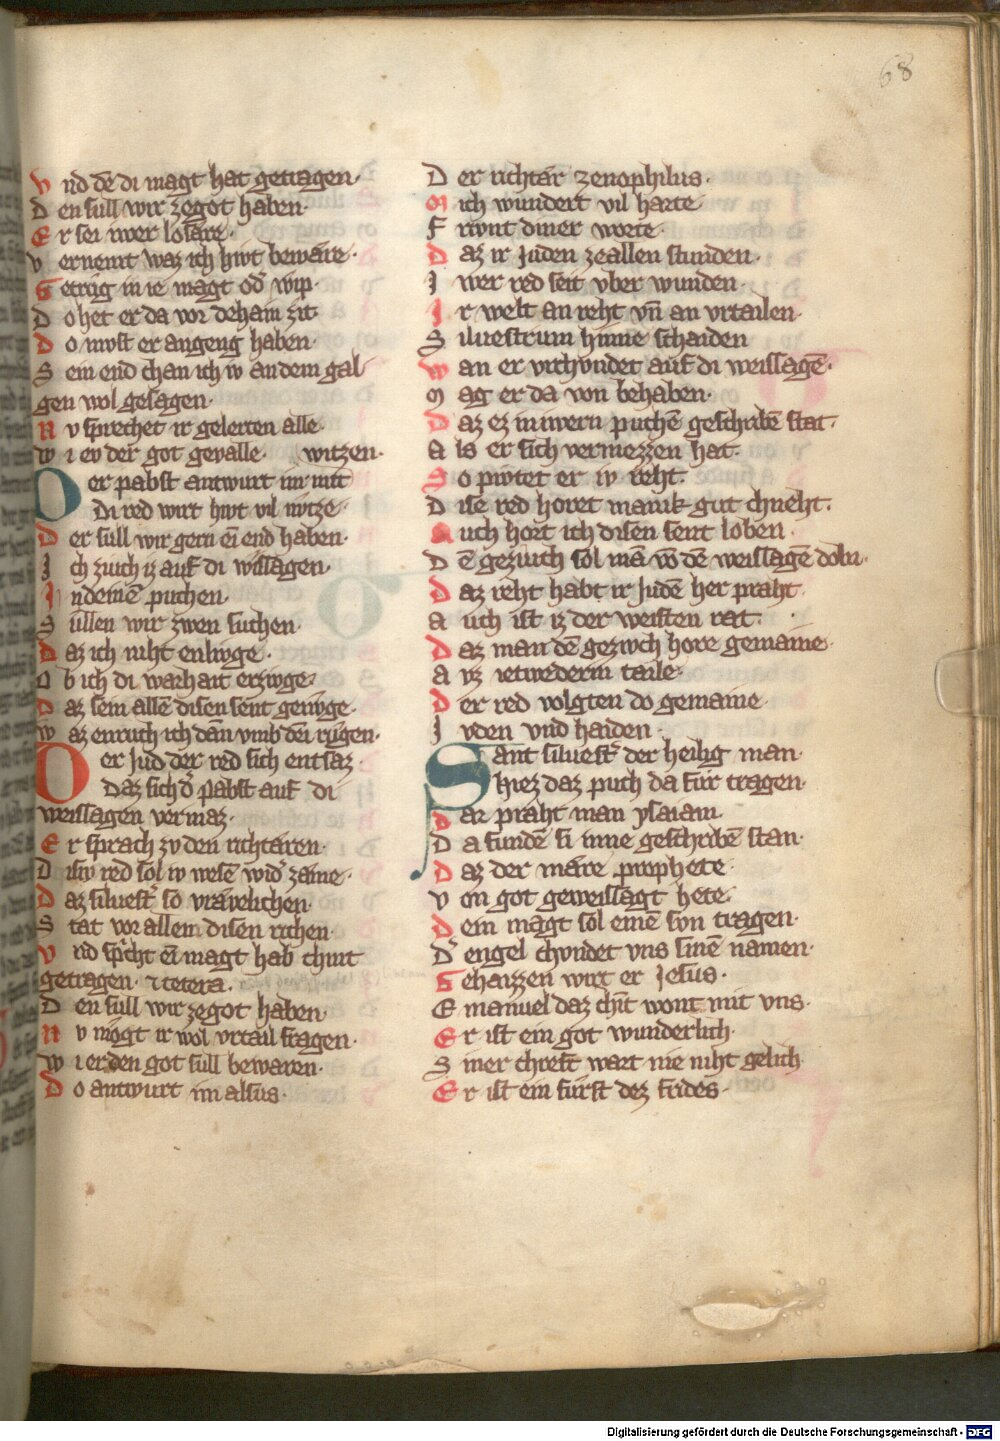 68
vnd dē di magt hat getragen·
Den sull wir zegot haben·
Er sei iwer losare·
Vernemt waz ich hiwt beware·
Getrüg in ie magt od̛ wip·
Do het er da vor dehain zit
Do mvst er angeng haben·
Sein end chan ich iv an dem gal
gen wol gesagen·
Nv sprechet ir gelerten alle·
Wi ev der got gevalle· witzen·
Der pabst antwurt im mit
Di red wirt hiwt vil nvtze·
Der sull wir gern ein end haben·
Ich zivch iz auf di wissagen·
In deinē puchen·
Sullen wir zwen suchen·
Daz ich niht enlivge·
Ob ich di warhait erzivge·
Daz sein allē disen sent genvge·
Waz enruch ich dān vmb dēn rvgen·
Der Jud der red sich entsaz·
Daz sich d̛ pabst auf di
weissagen vermaz·
Er sprach zv den richtaren·
Disiv red sol iv wesē wid̛ zame·
Daz siluest̛ so vravelichen·
Stat vor allem disen richen·
Vnd sp̛cht ein magt hab chint
getragen· et cetera·
Den sull wir zegot haben·
Nv mögt ir wol vrtail fragen·
Wi er den got sull bewaren·
Do antwurt im alsus·
Der richtar zenophilus·
Mich wundert vil harte
Friwnt diner worte·
Daz ir Juden zeallen stunden·
Iwer red seit vber wunden
Ir welt an reht vn̄ an vrtailen·
Siluestrum hinne schaiden
Wan er vrchvndet auf di weissagē·
Mag er da von behaben·
Daz ez in iwern puchē geschribē stat·
Als er sich vermezzen hat·
So piwtet er iv reht·
Dise red horet manik gut chneht·
Auch hort ich disen sent loben
Dē gezivch sol mā vō dē weissagē doln·
Daz reht habt ir Judē her praht
Auch ist iz der weisten rat·
Daz man dē gezivch hore gemaine·
Avz ietwederm taile·
Der red volgten do gemaine·
Ivden vnd haiden·
Sant siluest̛ der heilig man·
Hiez daz puch da fur tragen·
Dar praht man ysaiam·
Da fundē si inne geschribē stan·
Daz der mare prophete·
Von got geweissagt hete·
Dein magt sol einē svn tragen·
D̛ engel chvndet vns sinē namen·
Gehaizzen wirt er Jesus·
Emanuel daz chvt wont mit vns·
Er ist ein got wunderlich·
Siner chreft wart nie niht gelich
Er ist ein furst dez frides·
Digitalisierung gefördert durch die Deutsche Forschungsgemeinschaft - DFG